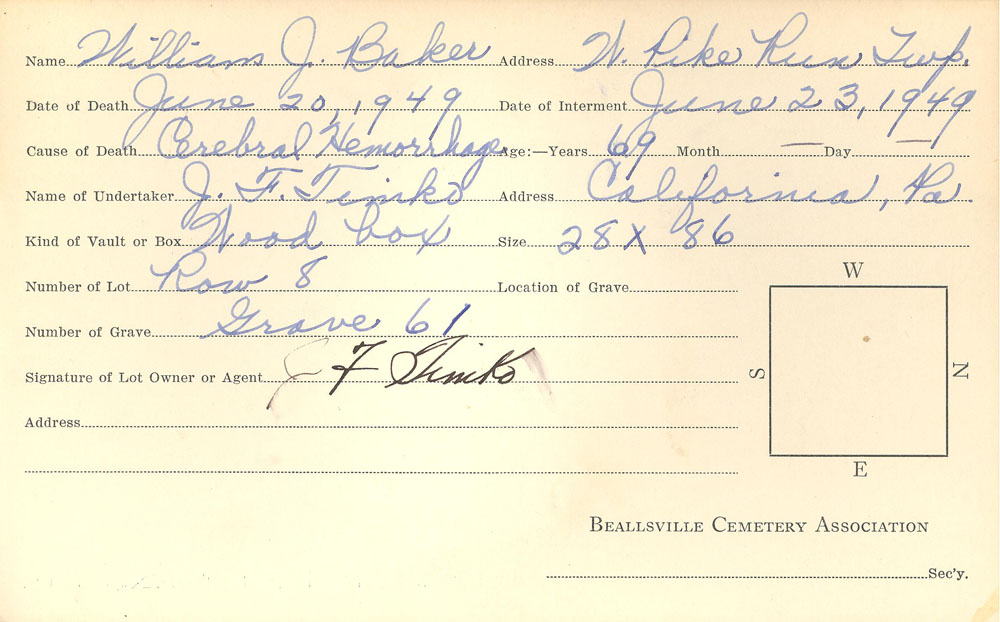 Name William J. Baker Address W. Pike Run Twp.
Date of Death June 20, 1949 Date of Interment June 23, 1949
Cause of Death Cerebral Hemorrhage Age:—Years 69 Month — Day —
Name of Undertaker J. F. Timko Address California, Pa.
Kind of Vault or Box Wood box Size 28 X 86
Number of Lot Row 8 Location of Grave
W
Number of Grave Grave 61
Signature of Lot Owner or Agent J F Timko
S N
Address
E
BEALLSVILLE CEMETERY ASSOCIATION
Sec'y.